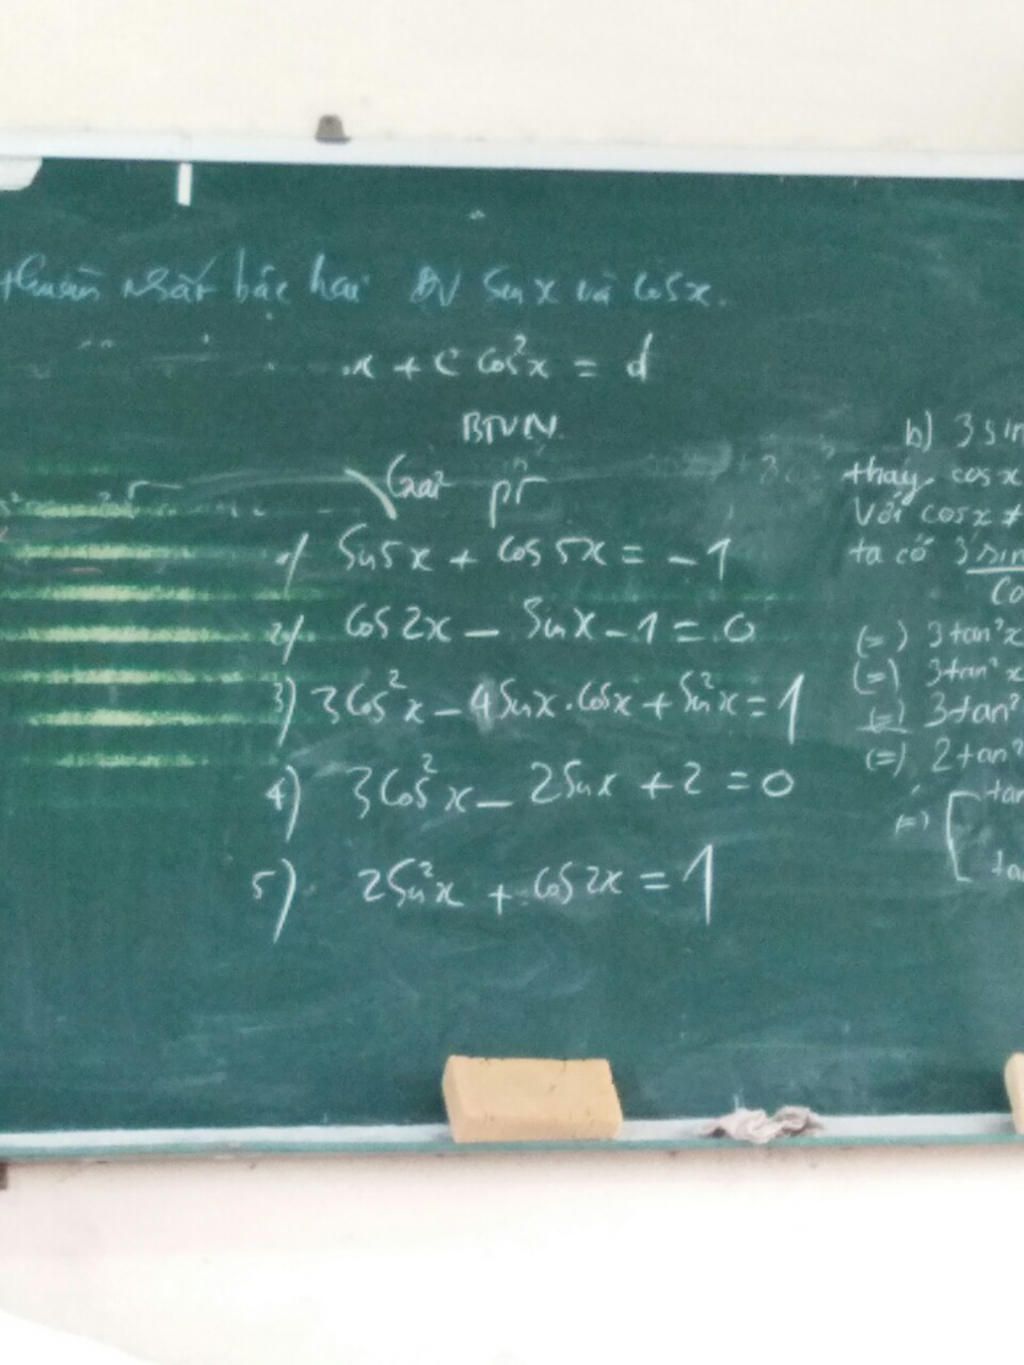 thuần nhất bậc hai ĐV sin x và cosx.
x + c cos²x = d
BTVN
Giải pt
1/ Sin5x + cos5x = -1
2/ cos2x - sinx - 1 = 0
3) 3cos²x - 4sinx.cosx + sin²x = 1
4) 3cos²x - 2sinx + 2 = 0
5) 2sin²x + cos2x = 1
b) 3 sin
thay cosx
Với cosx ≠
ta có 3 sin
(=) 3tan²x
(=) 3tan²x
(=) 3tan²
(=) 2tan²
(=) [ tan